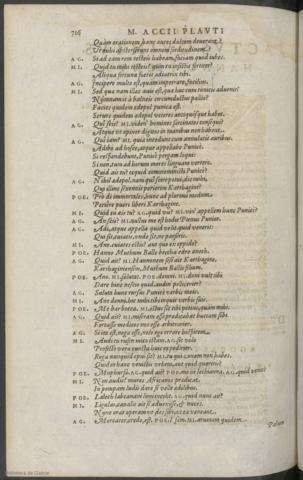 716
M. ACCII PLAVTI
Quàm orationem hanc aures dulcem deuorant?
AG. Sed ad eam rem testeis habeam, faciam quod iubes.
MI. Quid tu mihi testeis? quin tu insistis fortiter?
Aliqua fortuna fuerit adiutrix tibi.
AG. Incipere multo est, quàm impetrare, facilius.
MI. Sed quae nam illaec auis est, quae huc cum tunicis aduenit?
Nunnam is à balneis circumductus pallio?
Facies quidem edepol punica est.
Seruos quidem edepol veteres antiquosque habet.
AG. Qui scis? MI. viden' homines sarcinatos consequi?
Atque vt opinor digitos in manibus non habent.
AG. Quid iam? MI. quia incedunt cum annulatis auribus.
Adibo ad hosce, atque appellabo Punicè.
Si respondebunt, Punicè pergam loqui:
Si non, tum ad horum mores linguam vertero.
Quid ais tu? ecquid commeministi Punicè?
AG. Nihil edepol. nam qui scire potui, dic mihi,
Qui illinc sexennis perierim Karthagine?
POE. Pro di immortales,
Periere pueri liberi Karthagine.
MI. Quid en ais tu? AG. quid vis? MI. vin' appellem hunc Punicè?
AG. An scis? MI.
AG. Adi, atque appella quid velit, quid venerit:
Qui sit, cuiatis, vnde sit, ne parseris.
MI. Auo. cuiates estis? aut quo ex oppido?
POE. Hanno Muthum Balle
AG. Quid ait? MI. Hannonem sese ait Karthagine,
Karthaginiensem, Muthum Ballis filium.
POE. Auo. MI. salutat. POE. donni. MI. doni vult tibi
Dare hinc nescio quid. audin' pollicerier?
AG. Saluta hunc rursus Punicè verbis meis.
MI. Auo donni, hoc mihi tibi inquit verbis suis.
POE. Me bar bocca. MI.
AG. Quid ait? MI. miseram esse praedicat buccam sibi.
Fortasse medicos nos esse arbitrarier.
AG. Si ita est, nega esse, nolo ego errare hospitem.
MI. Audi tu
Profecto vera cuncta huic expedirier.
Roga nunquid opus sit? MI. tu qui zonam non habes,
Quid in hanc venistis vrbem, aut quid quaeritis?
POE. Muphursa. AG. quid ait? POE. AG. quid venit?
MI. Non audis? mures Africanos praedicat
In pompam ludis dare se velle aedilibus.
POE. AG. quid nunc ait?
MI. Ligulas, canalis ait se aduexisse, & nuces.
Nunc orat operam vt des sibi, vt ea veneant.
AG. Mercator, credo, est. POE. MI. aruinam quidem.
Palum